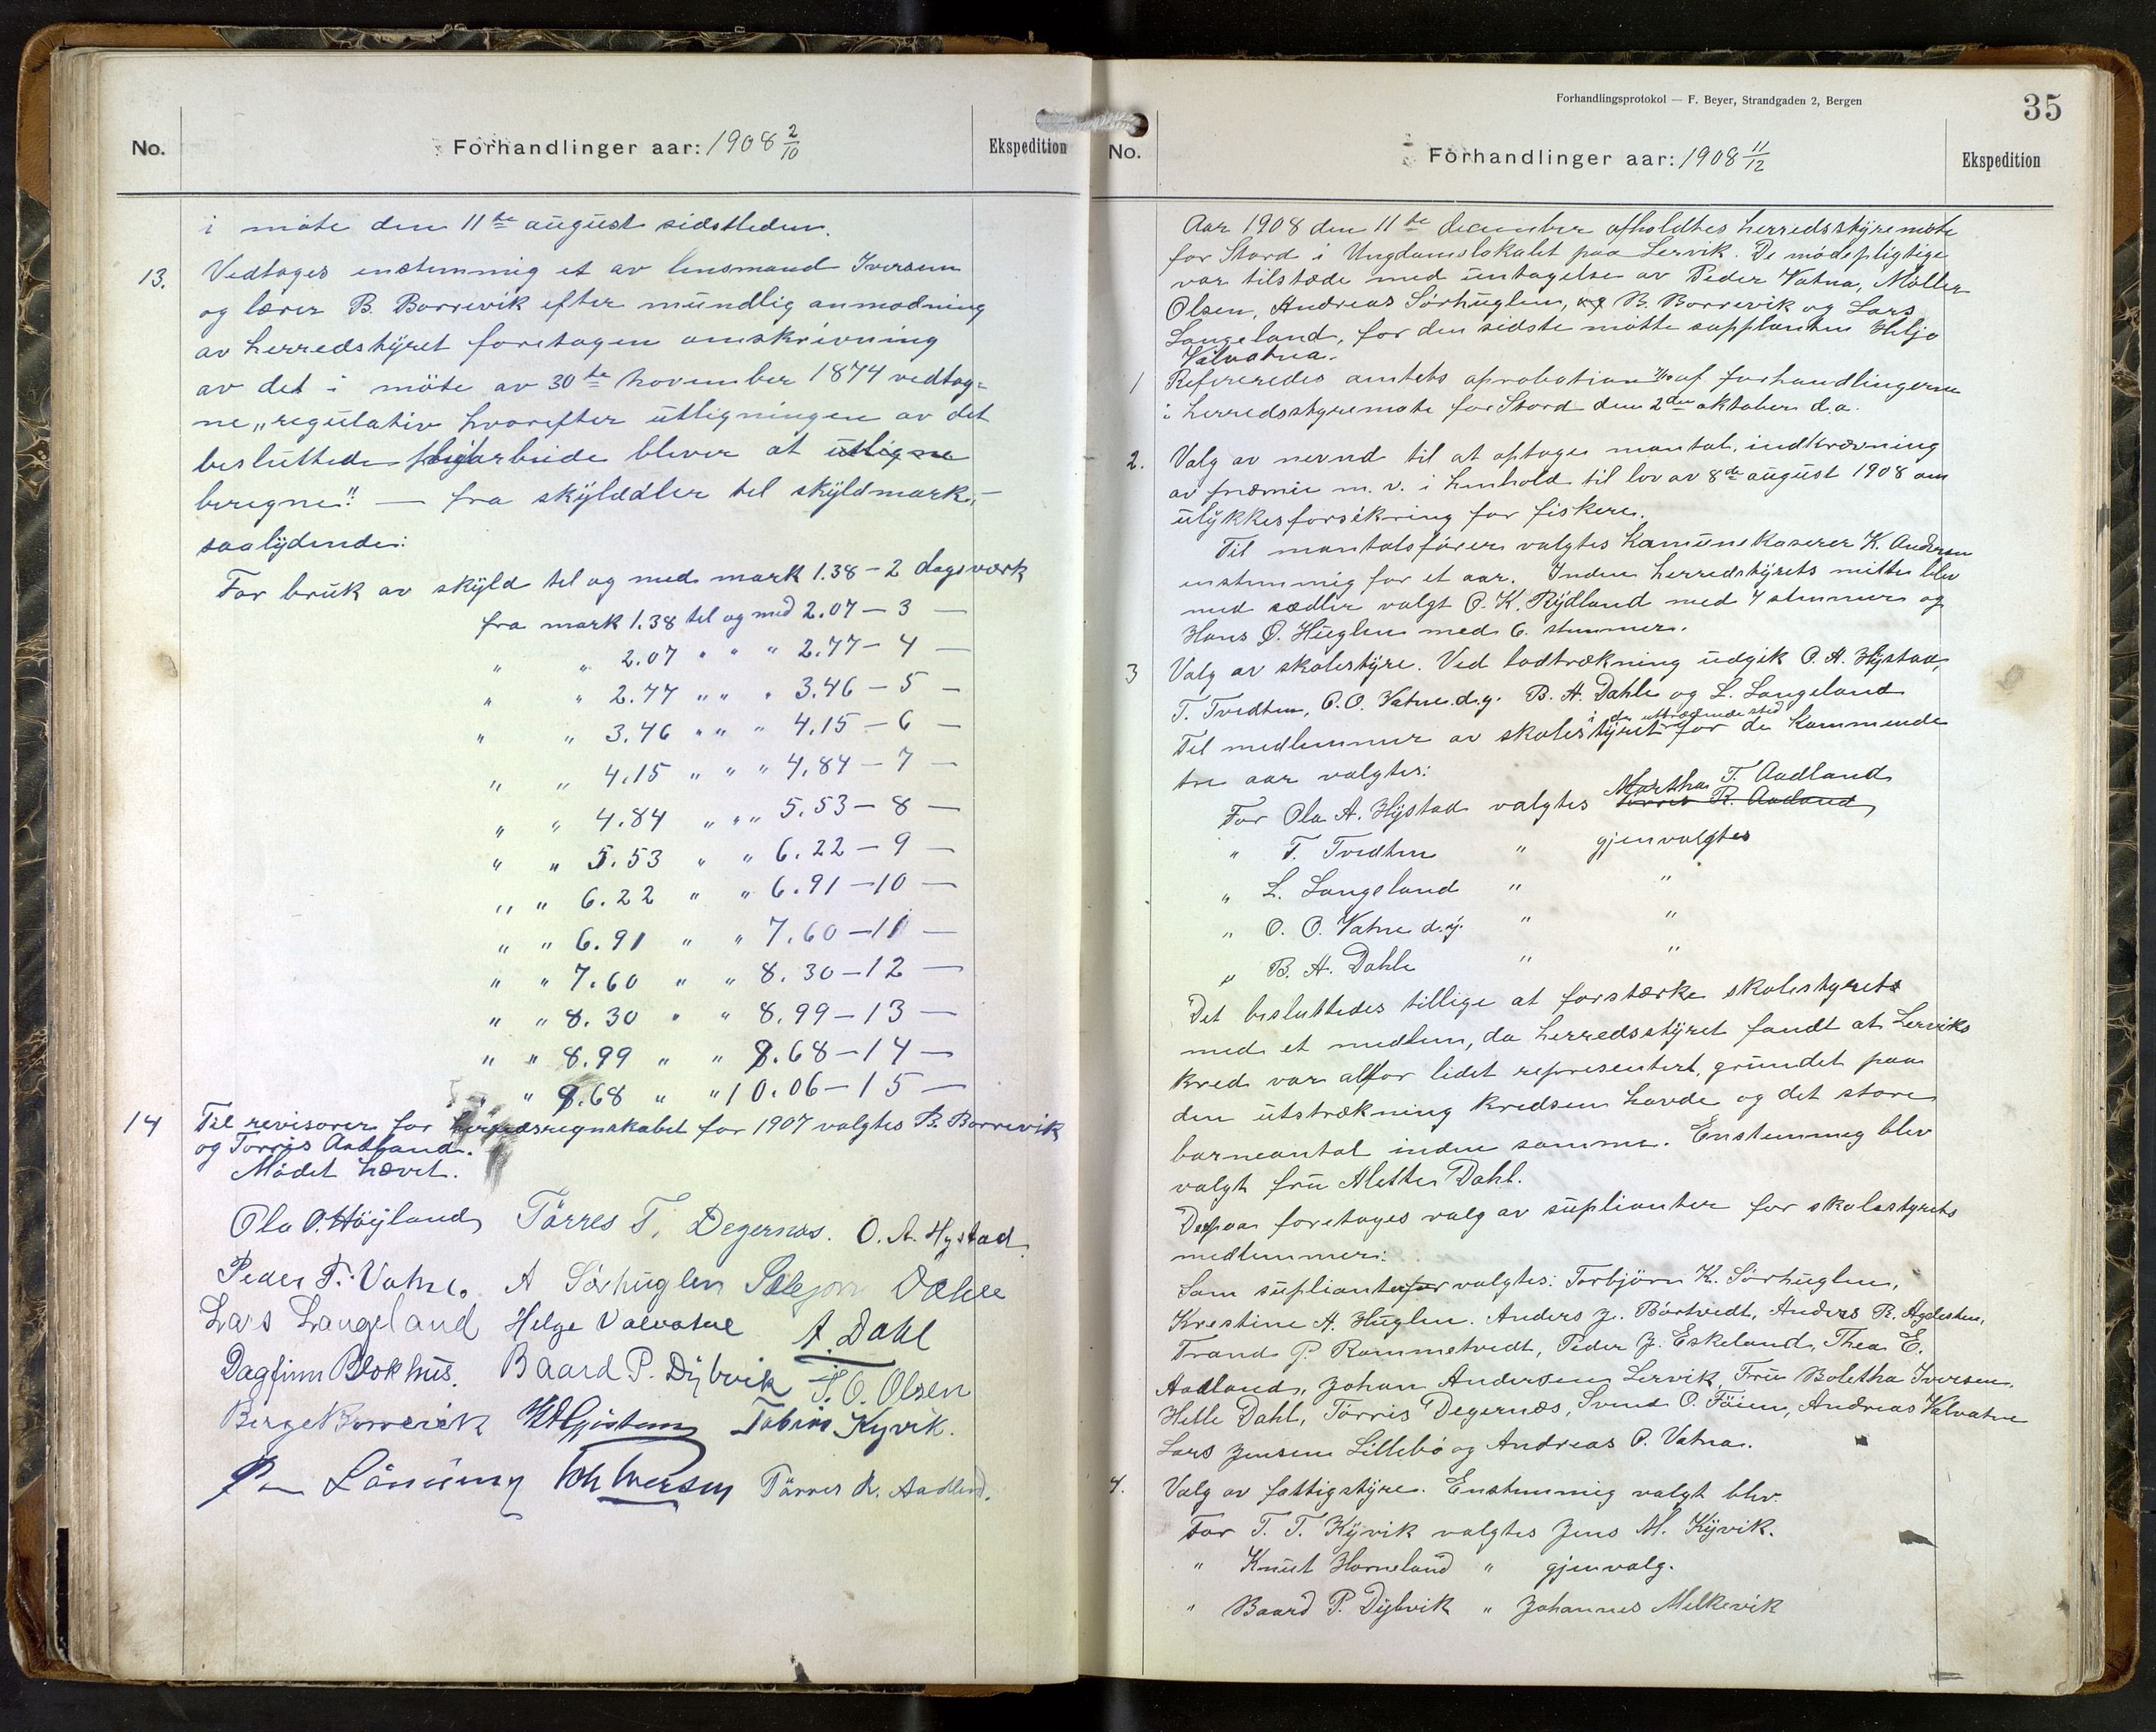 No.
Forhandlinger aar: 1908 2/10
Ekspedition
i møte den 11te august sidstleden.
13. Vedtages enstemmig et av lensmand Iversen
og lærer B. Borrevik efter mundlig anmodning
av herredstyret foretagen omskrivning
av det i möte av 30te november 1874 vedtag-
ne „regulativ hvorefter utligningen av det
besluttede pligtarbeide bliver at utligne
beregne" — fra skylddaler til skyldmark,—
saalydende:
For bruk av skyld til og med mark 1.38 – 2 dagsværk
fra mark 1.38 til og med 2.07 – 3 —
" " 2.07 " " " 2.77 – 4 —
" " 2.77 " " " 3.46 – 5 —
" " 3.46 " " " 4.15 – 6 —
" " 4.15 " " " 4.84 – 7 —
" " 4.84 " " " 5.53 – 8 —
" " 5.53 " " 6.22 – 9 —
" " 6.22 " " 6.91 – 10 —
" " 6.91 " " 7.60 – 11 —
" " 7.60 " " 8.30 – 12 —
" " 8.30 " " 8.99 – 13 —
" " 8.99 " " 9.68 – 14 —
" " 9.68 " " 10.06 – 15 —
14 Til revisorer for herredsregnskabet for 1907 valgtes B. Borrevik
og Torris Aadland.
Mödet hævet.
Ola O. Höyland Törres T. Degernæs. O. A. Hystad
Peder T. Vatne. A Sörhuglen Dahle
Lars Langeland Helge Valvatne A. Dahl
Dagfinn Blokhus. Baard P. Dybvik T. O. Olsen
Børge Borrevik Tobias Kyvik.
Iversen Törres R. Aadland.
Forhandlingsprotokol — F. Beyer, Strandgaden 2, Bergen
35
No.
Forhandlinger aar: 1908 11/12
Ekspedition
Aar 1908 den 11te december afholdtes herredsstyremøte
for Stord i Ungdomslokalet paa Lervik. De mødepligtige
var tilstæde med untagelse av Peder Vatna, Möller
Olsen, Andreas Sörhuglen, og B. Borrevik og Lars
Langeland, for den sidste mötte supplanten Helje
Valvatna.
1 Refereredes amtets aprobation af forhandlingerne
i herredsstyremøte for Stord den 2den oktober d.a.
2. Valg av nevnd til at optage mantal, indkrævning
av præmie m. v. i henhold til lov av 8de august 1908 om
ulykkesforsikring for fiskere.
Til mantalsförer valgtes kamunekaserer K. Andersen
enstemmig for et aar. Inden herredstyrets mitte blev
med sedler valgt O. K. Rydland med 7 stemmer og
Hans Ø. Huglen med 6. stemmer.
3 Valg av skolestyre. Ved lodtrækning udgik O. A. Hystad,
T. Tvedten, O. O. Vatne d.y. B. H. Dahle og L. Langeland
i de uttrædende sted
Til medlemmer av skolestyret for de kommende
tre aar valgtes:
Martha T. Aadland
For Ola A. Hystad valgtes Torris R. Aadland,
" T. Tvedten " gjenvalgtes
" L. Langeland " "
" O. O. Vatne d.y. " "
" B. H. Dahle " "
Det besluttedes tillige at forstærke skolestyrets
med et medlem, da herredsstyret fandt at Lerviks
kred var alfor lidet representert, grundet paa
den utstrækning kredsen havde og det store
barneantal inden samme. Enstemmig blev
valgt fru Alette Dahl.
Derpaa foretages valg av suplianter for skolestyrets
medlemmer:
Som suplianter for valgtes: Torbjörn K. Sörhuglen,
Krestine H. Huglen. Anders J. Börtvedt, Anders R. Agdesten,
Trand P. Rommetvedt, Peder J. Eskeland, Thea E.
Aadland, Johan Andersen Lervik, Fru Boletha Iversen,
Helle Dahl, Törris Degernæs, Svend O. Föien, Andreas Valvatne
Lars Jensen Lillebö og Andreas P. Vatna.
4. Valg av fattigstyre. Enstemmig valgt blev.
For T. T. Kyvik valgtes Jens M. Kyvik.
" Knut Horneland " gjenvalg.
" Baard P. Dybvik " Johannes Melkevik